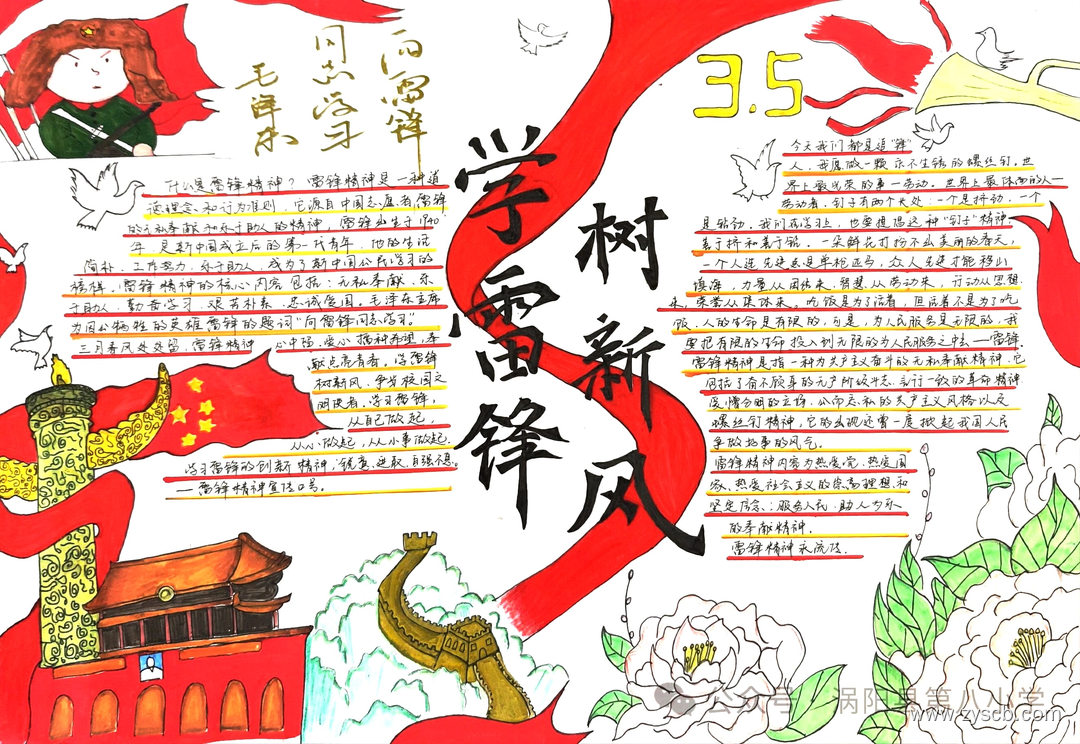 向雷锋
同志学习
毛泽东
3.5
学雷锋
树新风
什么是雷锋精神?雷锋精神是一种道
德理念和行为准则,它源自中国志愿者雷锋
的无私奉献和乐于助人的精神,雷锋出生于1940
年,是新中国成立后的第一代青年,他的生活
简朴、工作努力、乐于助人,成为了新中国公民学习的
榜样,雷锋精神的核心内容包括:无私奉献、乐
于助人、勤奋学习、艰苦朴素、忠诚爱国。毛泽东主席
为因公牺牲的英雄雷锋的题词"向雷锋同志学习"。
三月春风处处留,雷锋精神 心中强,爱心播种希望,奉
献点亮青春。学雷锋
树新风,争当校园文
明使者。学习雷锋,
从自己做起,
从小做起,从小事做起.
学习雷锋的创新精神,锐意进取,自强不息。
—雷锋精神宣传口号。
今天我们都是追"锋"
人,我愿做一颗永不生锈的螺丝钉,世
界上最光荣的事—劳动。世界上最体面的人—
劳动者,钉子有两个长处:一个是挤劲,一个
是钻劲,我们在学习上,也要提倡这种"钉子"精神
善于挤和善于钻。一朵鲜花打扮不出美丽的春天,
一个人先进总是单枪匹马,众人先进才能移山
填海,力量从团结来,智慧从劳动来,行动从思想
来,荣誉从集体来。吃饭是为了活着,但活着不是为了吃
饭、人的生命是有限的,可是,为人民服务是无限的,我
要把有限的生命投入到无限的为人民服务之中去—雷锋.
雷锋精神是指一种为共产主义奋斗的无私奉献精神,它
包括了奋不顾身的无产阶级斗志、言行一致的革命精神
爱憎分明的立场、公而忘私的共产主义风格以及
螺丝钉精神,它的出现还曾一度掀起我国人民
争做好事的风气。
雷锋精神内容为热爱党、热爱国
家、热爱社会主义的崇高理想和
坚定信念:服务人民、助人为乐
的奉献精神.
雷锋精神永流传.
公众号·涡阳县第八小学
www.zyscb.com